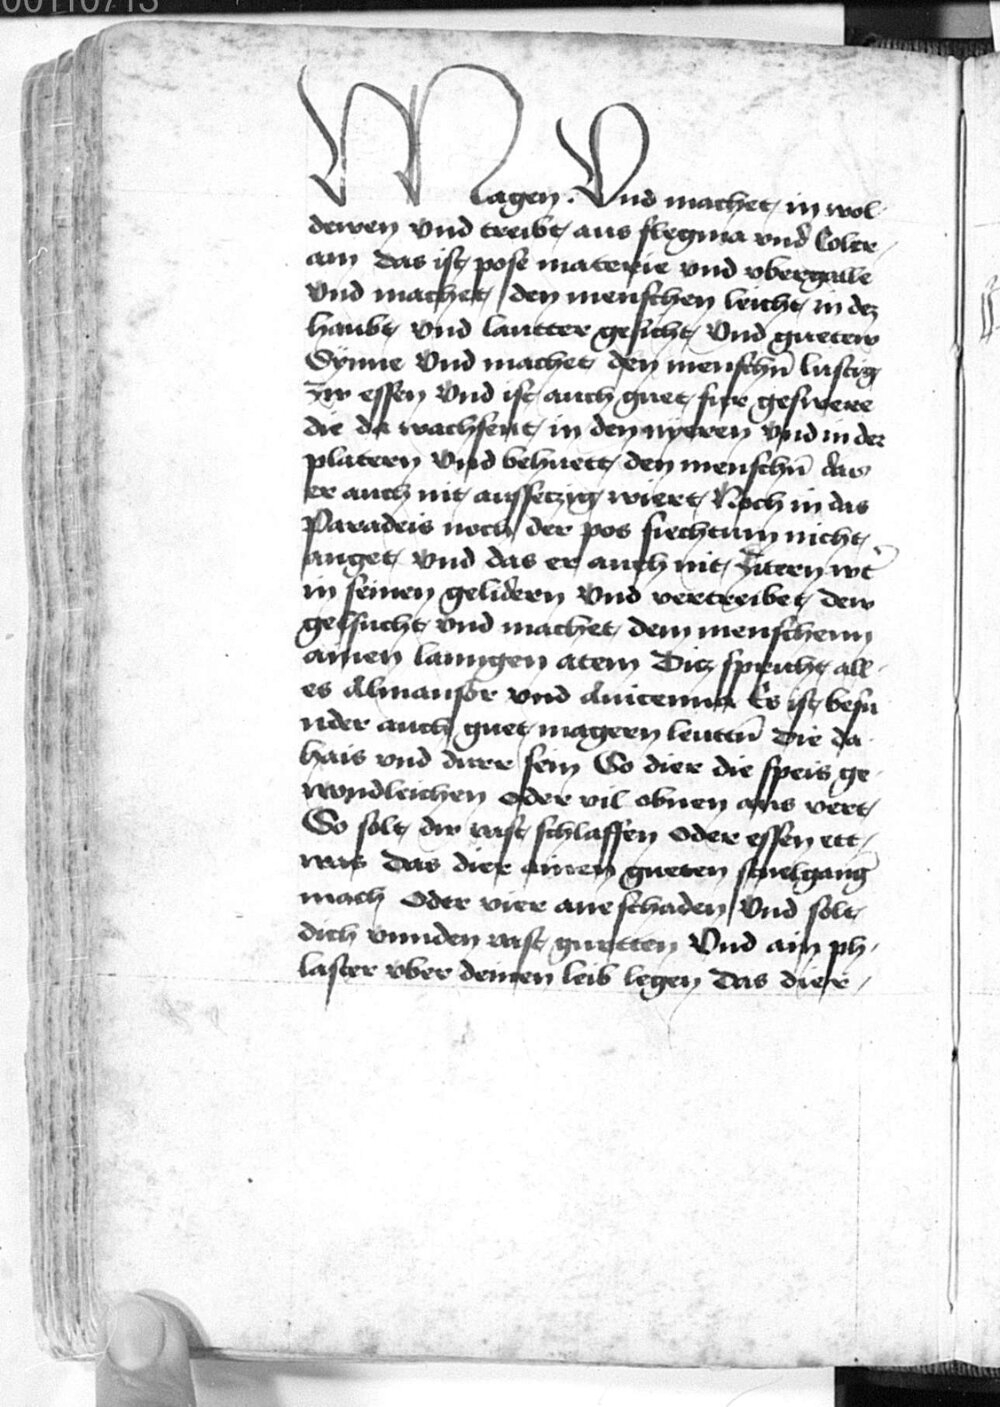 00110713
Magen. Vnd machet in wol
dewen vnd treibt aus flegma vnd Coler
am das ist pose materie vnd vbergalle
vnd machet den menschen leicht in dez
haubt vnd lautter gesicht Vnd gueten
Synne Vnd machet den menschn̄ lustig
zw essen Vnd ist auch guet fur geswere
die da wachsent in den nyeren Vnd in der
platern Vnd behuett den menschn̄ das
er auch nit aussetzig wiert Noch in das
Paradeis noch der pos siechtum nicht
anget Vnd das er auch nit zitern wt̄
in seinen gelidern Vnd vertreibet dew
gelsucht vnd machet dem menschenn
ainen lanngen atem Ditz spricht all
es Almansor vnd Auicenna Es ist besu
nder auch guet magern leuten̄ Die da
hais vnd durr sein So dier die speis ge
wondleichen oder vil obnen aus vert
So solt dw vast schlaffen oder essen ett
was das dier ainen gueten stuelgang
mach Oder vier ane schaden Vnd solt
dich vnnden vast gurtten Vnd ain ph
laster vber deinen leib legen Das dier